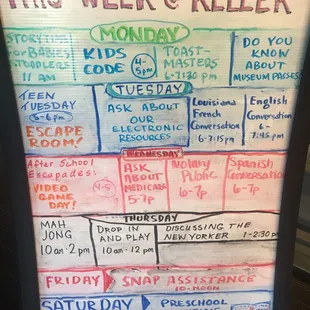 THIS WEEK @ KELLER
MONDAY
STORYTIME
for BABIES
TODDLERS
11 AM
KIDS
CODE
4-
5pm
TOAST-
MASTERS
6-7:30 pm
DO YOU
KNOW
ABOUT
MUSEUM PASSES
TUESDAY
TEEN
TUESDAY
5-6pm
ESCAPE
ROOM!
ASK ABOUT
OUR
ELECTRONIC
RESOURCES
Louisiana
French
Conversation
6-7:15pm
English
Conversation
6-
7:45pm
WEDNESDAY
After School
Escapades:
VIDEO
GAME
DAY!
4-5
ASK
ABOUT
MEDICARE
5-7p
Notary
Public
6-7p
Spanish
Conversation
6-7p
THURSDAY
MAH
JONG
10am-2pm
DROP IN
AND PLAY
10am-12pm
DISCUSSING THE
NEW YORKER 1-2:30pm
FRIDAY
SNAP ASSISTANCE
10-NOON
SATURDAY
PRESCHOOL